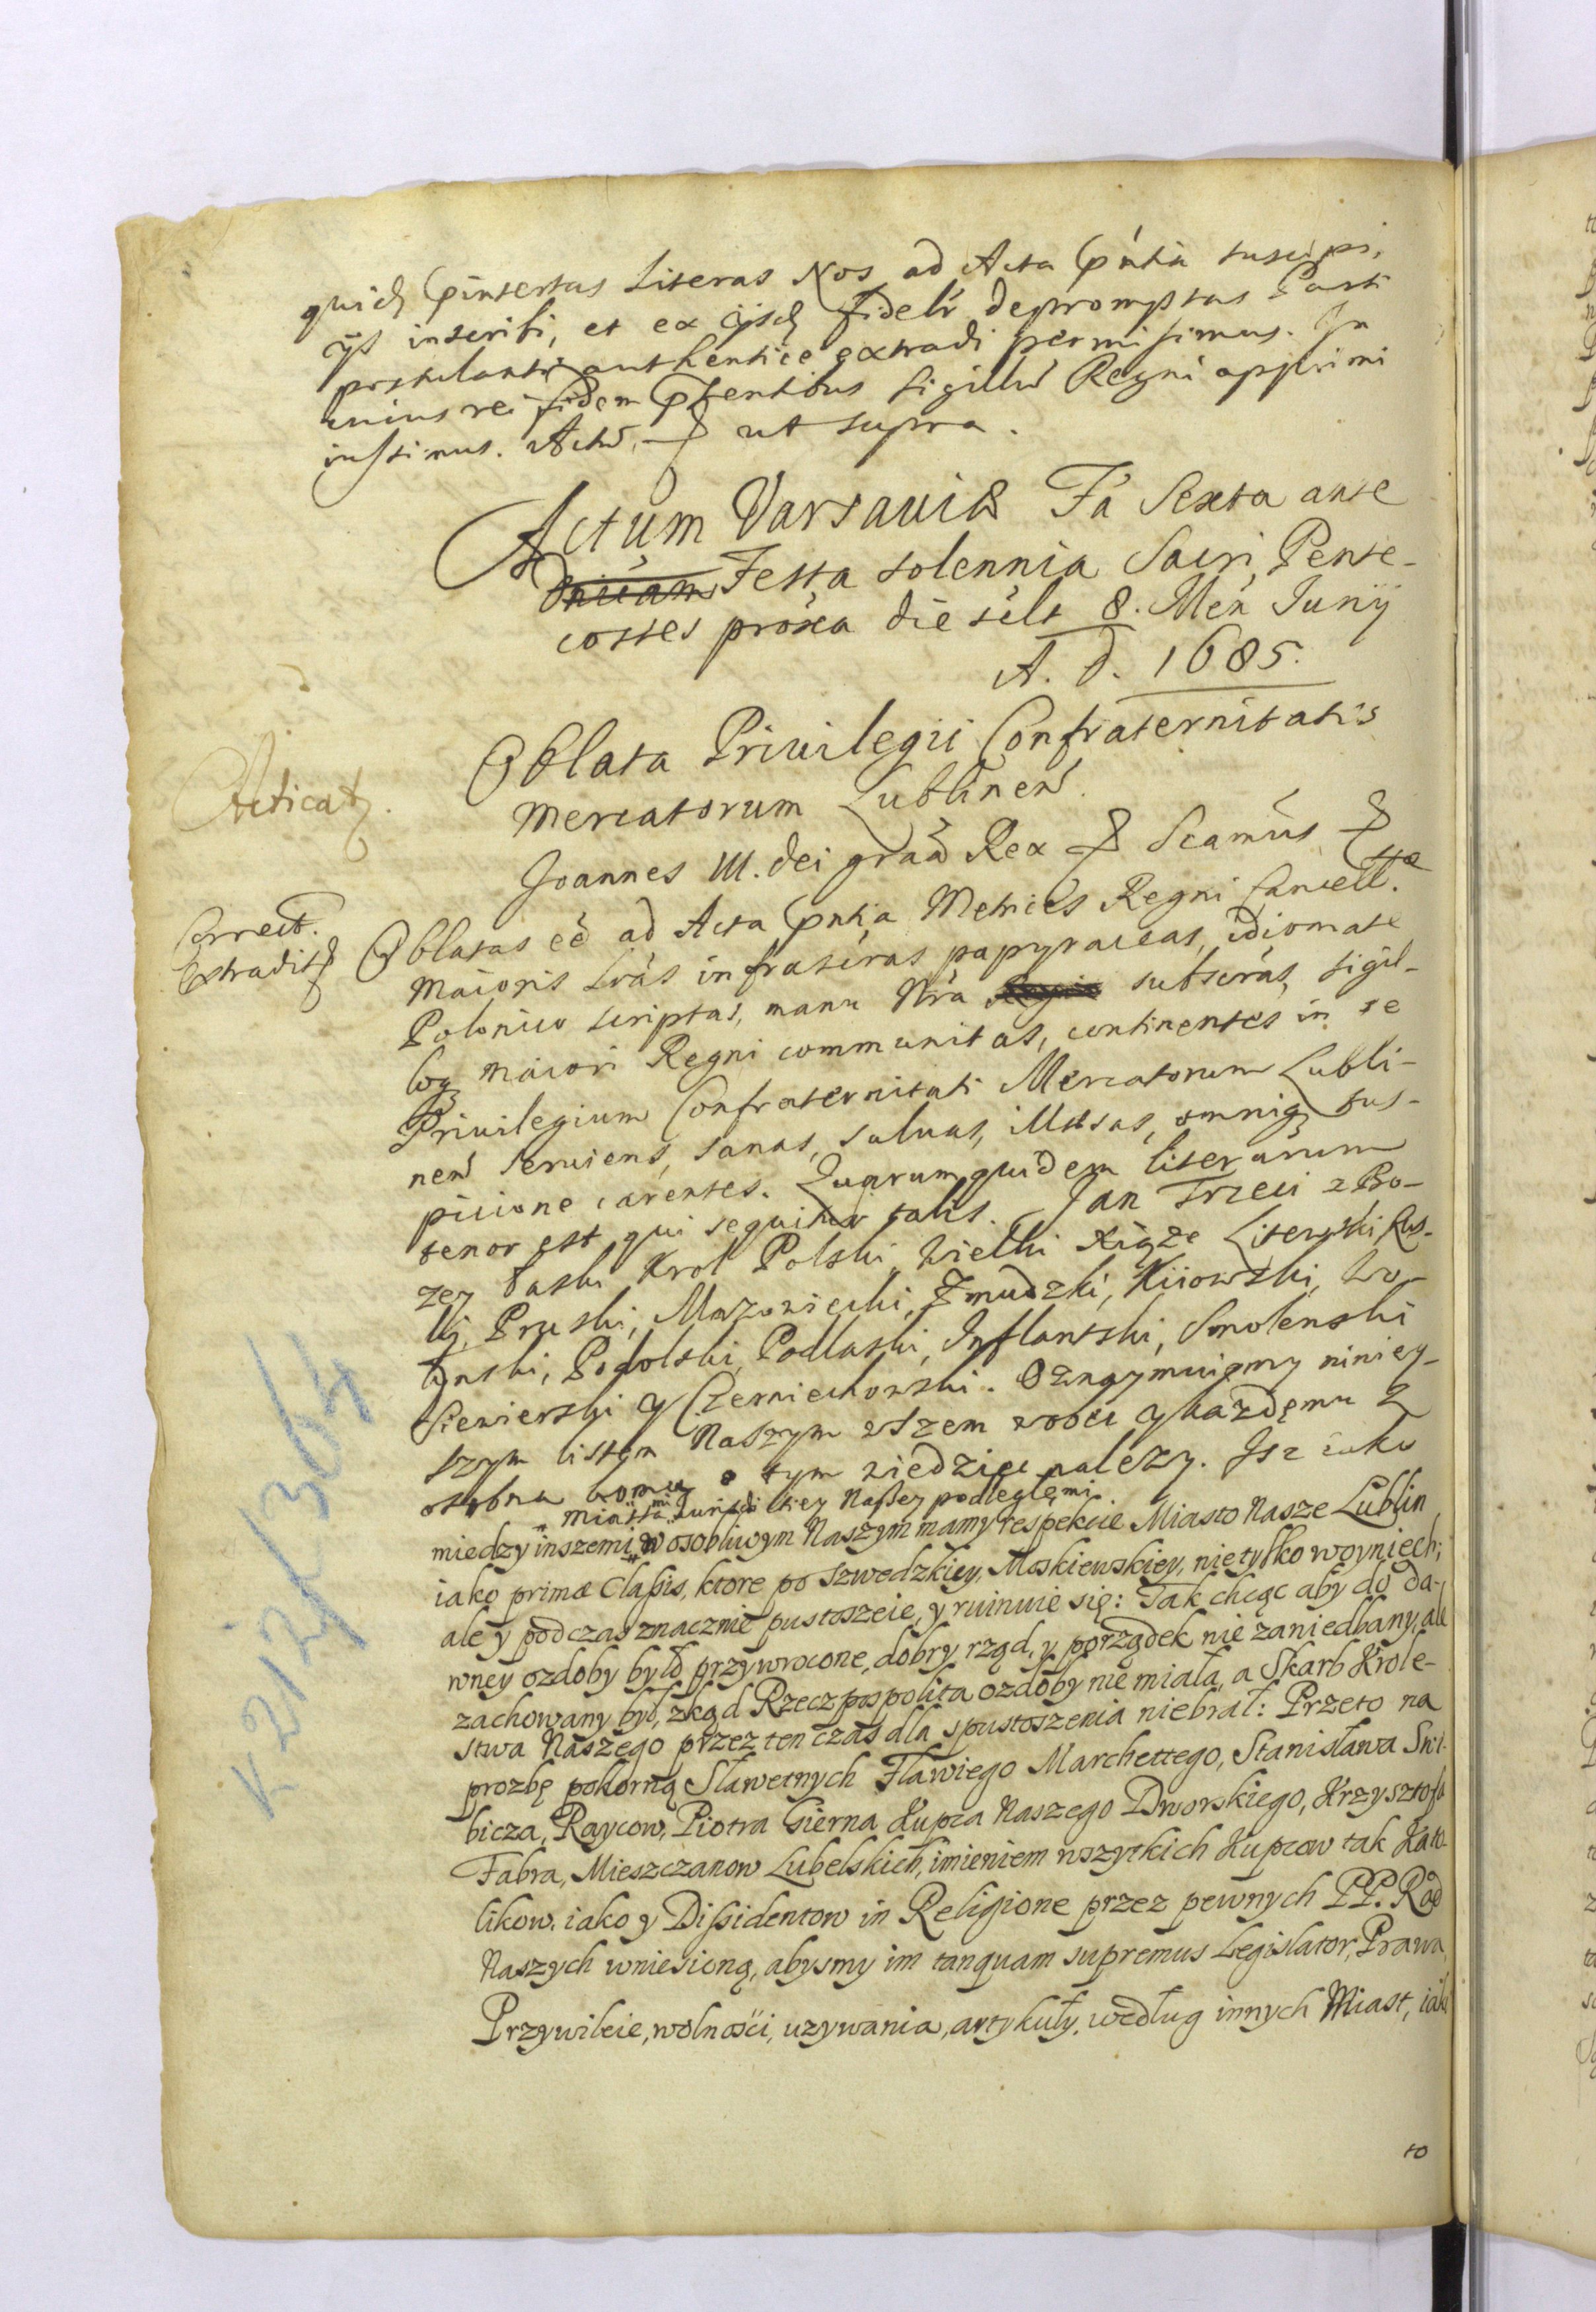 quid pinsertas Literas Nos ad Acta pntia suscipi,
ijs inscribi, et ex ijsd fideliter depromptas Parti
postulanti authentice extradi permisimus. In
cuius rei fidem Pntibus sigillũ Regni apprimi
iussimus. Actũ, ut supra.
Actum Varsaviæ Fa Sexta ante
Festa solennia Sacri Pente-
costes proxa die sclt 8. Men Junij
A. D. 1685.
Oblata Privilegii Confraternitatis
Mercatorum Lublinen.
Acticat.
Joannes III. Dei graã Rex & Scamus &
Correct.
Extradit
Oblatas eẽ ad Acta pntia Metrices Regni Cancell.
Maioris Lras infrascras papyraceas, idiomate
Polonico scriptas, manu Nra subscras, sigil-
loq maiori Regni communitas, continentes in se
Privilegium Confraternitati Mercatorum Lubli-
nen serviens, sanas, salvas, illæsas, omniq sus-
picione carentes. Quarum quidem literarum
tenor est qui sequitur talis. Jan Trzeci z Bo-
zey Łaski Krol Polski, Wielki Xiąże Litewski, Rus-
ki, Pruski, Mazowiecki, Zmudzki, Kiiowski, Wo-
łynski, Podolski, Podlaski, Inflantski, Smolenski
Siewierski y Czerniechowski. Oznaymuiemy niniey-
szym listem Naszym wszem wobec y kazdemu z
osobna komu o tym wiedziec nalezy. Isz iako
Miastami Jurisdictiey Naszey podległemi
miedzy inszemi w osobliwym Naszym mamy respekcie Miasto Nasze Lublin
iako primæ Classis, ktore po Szwedzkiey, Moskiewskiey, nie tylko woyniech;
ale y podczas znacznie pustoszeie, y ruinuie się: Tak chcąc aby do da-
wney ozdoby było przywrocone, dobry rząd, y porządek nie zaniedbany, ale
zachowany był, zkąd Rzeczpospolita ozdoby nie miała, a Skarb Krole-
stwa Naszego przez ten czas dla spustoszenia niebrał: Przeto na
prozbę pokorną Sławetnych Flawiego Marchettego, Stanisława Ski-
bicza, Raycow, Piotra Gierna Kupca Naszego Dworskiego, Krzysztofa
Fabra, Mieszczanow Lubelskich, imieniem wszytkich Kupcow tak Kato-
likow, iako y Dissidentow in Religione przez pewnych PP. Rad
Naszych wniesioną, abysmy im tanquam supremus Legislator, Prawa,
Przywileie, wolnosci, uzywania, artykuły, według innych Miast, iako
to
K 212/364